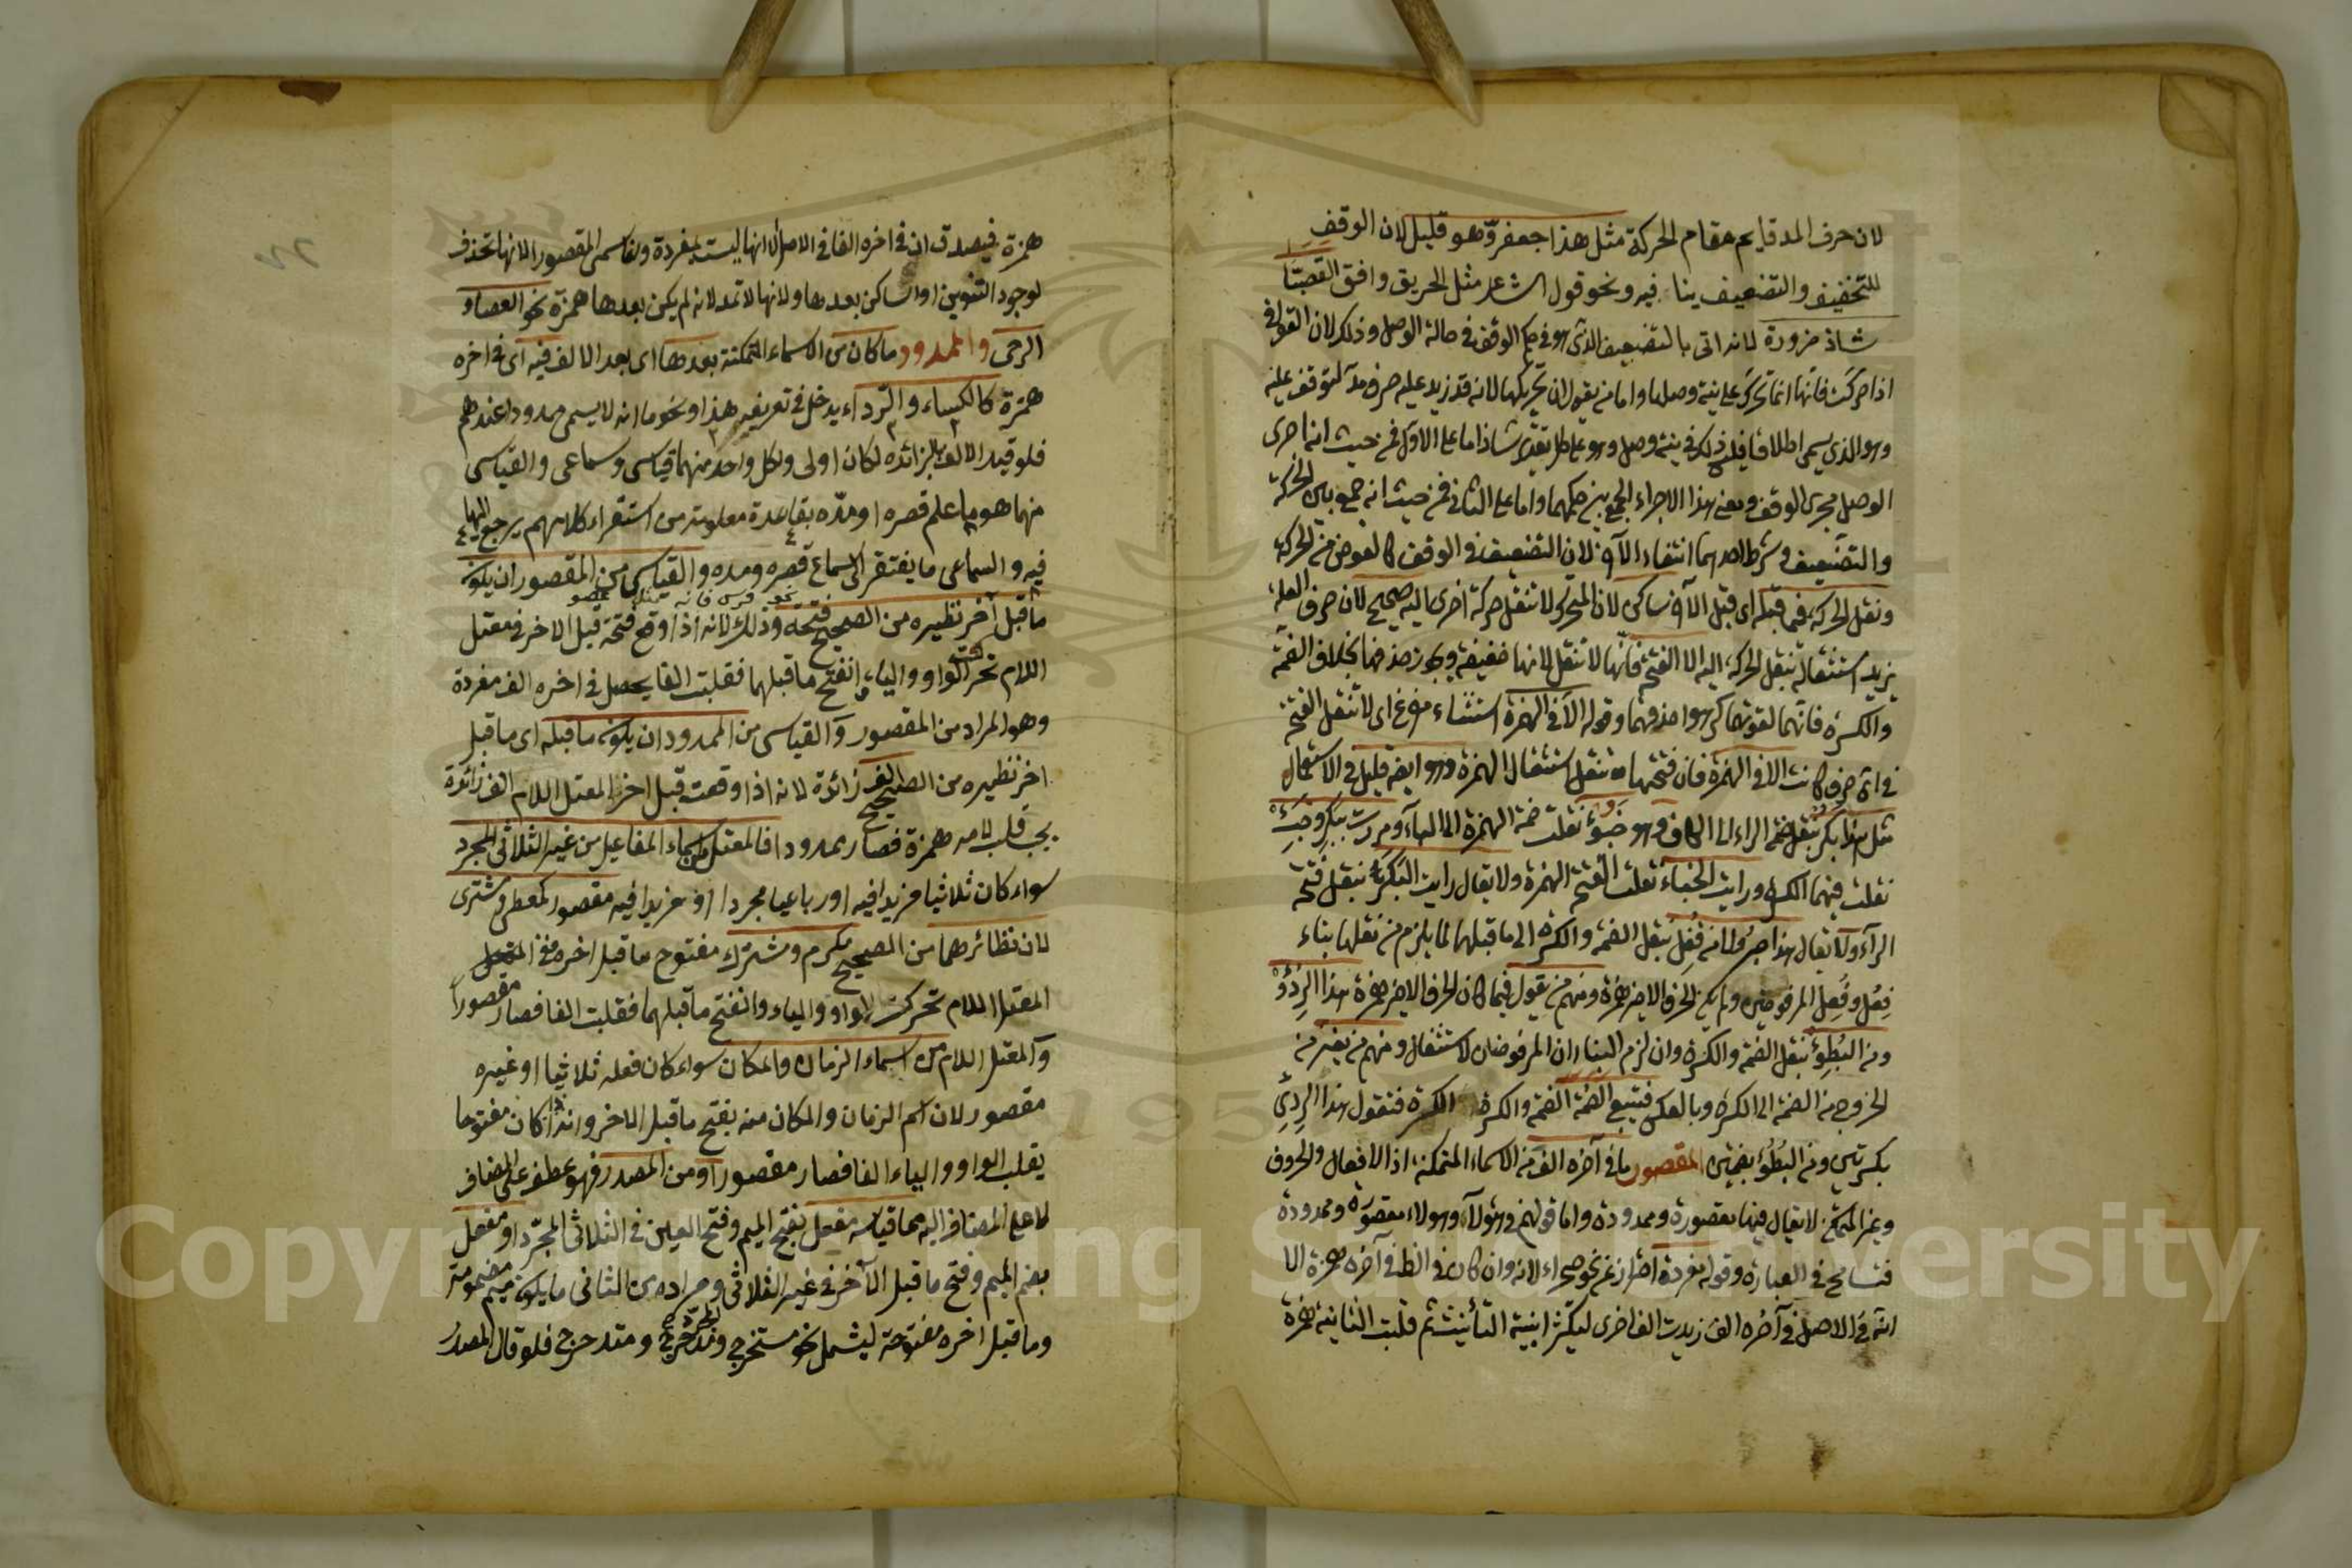 لان حرف المد قايم مقام الحركة مثل هذا جعفرّ وهو قليل لان الوقف
للتخفيف والتضعيف ينا فيه ونحو قول الشاعر مثل الحريق وافق القصبّا
شاذ ضرورة لانه اتى بالتضعيف الذى هو فى حكم الوقف فى حالة الوصل وذلك لان القوافى
اذا حركت فانها انما تحرك على نية وصلها واما من يقول ان تحريكها لانه قد زيد عليه حرف مد لتوقف عليه
وهو الذى يسمى اطلاقا فليس ذلك فى نية وصل وهو على كل تقدير شاذ اما على الاول فمن حيث انه اجرى
الوصل مجرى الوقف ومعنى هذا الاجراء الجمع بين حكمهما واما على الثانى فمن حيث انه جمع بين الحركة
والتضعيف وشرط احدهما انتفاء الآخر لان التضعيف فى الوقف كالعوض من الحركة
ونقل الحركة فيما قبله اى قبل الآخر ساكن لان المتحرك لا تنقل حركة اخرى اليه صحيح لان حرف العلة
يزيد استثقاله بنقل الحركة اليه الا الفتحة فانها لا تنقل لانها خفيفة ويجوز حذفها بخلاف الضمة
والكسرة فانهما لقوتهما كرهوا حذفهما وقوله الا فى الهمزة استثناء مفرغ اى لا تنقل الفتحة
فى اى حرف كانت الا فى الهمزة فان فتحتها تنقل استثقال الهمزة وهو ايضا قليل فى الاستعمال
مثل هذا بكر بنقل ضمة الراء الى الكاف وهو خبؤ نقلت ضمة الهمزة الى الباء ومررت ببكر وخبئ
نقلت فيهما الكسرة ورايت الخباء نقلت الفتحة الهمزة ولا يقال رايت البكر بنقل فتحة
الراء ولا يقال هذا حبر ولا من قفل بنقل الضمة والكسرة الى ما قبلهما لما يلزم من نقلها بناء
فعل وفعل المرفوضين ولم يكن الحرف الاخير همزة ومنهم من يقول فيما كان الحرف الاخير همزة هذا الردؤ
ومن البطئ بنقل الضمة والكسرة وان لزم البناءان المرفوضان لاستثقال ومنهم من يفر من
الخروج من الضمة الى الكسرة وبالعكس فيتبع الضمة الضمة والكسرة الكسرة فتقول هذا الردئ
بكسرتين ومن البطؤ بضمتين المقصور ما فى آخره الف من الاسماء المتمكنة اذ الافعال والحروف
وغير المتمكن لا يقال فيها مقصورة وممدودة واما قولهم فى هؤلاء وهولا مقصورة وممدودة
فتسامح فى العبارة وقوله مفردة احتراز عن نحو صحراء لانه وان كان فى الظ فى آخره همزة الا
انه فى الاصل فى آخره الف زيدت الف اخرى لتكثر ابنية التأنيث ثم قلبت الثانية همزة
همزة فيصدق ان فى اخره الفا فى الاصل الا انها ليست بمفردة وانما سمى المقصور لانها تحذف
لوجود التنوين او الساكن بعدها ولانها لا تمد لانه لم يكن بعدها همزة نحو العصا و
الرحى والممدود ما كان من الاسماء المتمكنة بعدها اى بعد الالف فيه اى فى اخره
همزة كالكساء والرداء يدخل فى تعريفه هذا ونحو ماء انه لا يسمى ممدودا عندهم
فلو قيد الالف بالزائدة لكان اولى ولكل واحد منهما قياسى وسماعى والقياسى
منهما هو ما علم قصره او مده بقاعدة معلومة من استقراء كلامهم يرجع اليها
فيه والسماعى ما يفتقر الى سماع قصره ومده والقياسى من المقصور ان يكون
ما قبل آخر نظيره من الصحيح فتحة وذلك لانه اذا وقع فتحة قبل الاخر فى معتل
اللام تحركت الواو والياء وانفتح ما قبلهما فقلبت الفا يحصل فى اخره الف مفردة
وهو المراد من المقصور والقياسى من الممدود ان يكون ما قبله اى ما قبل
اخر نظيره من الصحيح الف زائدة لانه اذا وقعت قبل اخر المعتل اللام الف زائدة
يجب قلب لامه همزة فصار ممدودا فالمعتل من اسماء المفاعيل من غير الثلاثى المجرد
سواء كان ثلاثيا مزيدا فيه او رباعيا مجردا او مزيدا فيه مقصور كمعطى ومشترى
لان نظائرهما من الصحيح مكرم ومشترك مفتوح ما قبل اخره ففى المعتل
المعتل اللام تحركت الواو والياء وانفتح ما قبلهما فقلبت الفا فصار مقصورا
والمعتل اللام من اسماء الزمان والمكان سواء كان فعله ثلاثيا او غيره
مقصور لان اسم الزمان والمكان منه بفتح ما قبل الاخر واذا كان مفتوحا
يقلب الواو والياء الفا فصار مقصورا ومن المصدر فهو عطف على المضاف
لا على المضاف اليه مما قياسه مفعل بفتح الميم وفتح العين فى الثلاثى المجرد او مفعل
بضم الميم وفتح ما قبل الآخر فى غير الثلاثى ومراده من الثانى ما يكون ميم مضمومة
وما قبل اخره مفتوحة ليشمل نحو مستخرج ومدحرج ومتدحرج فلو قال المصدر